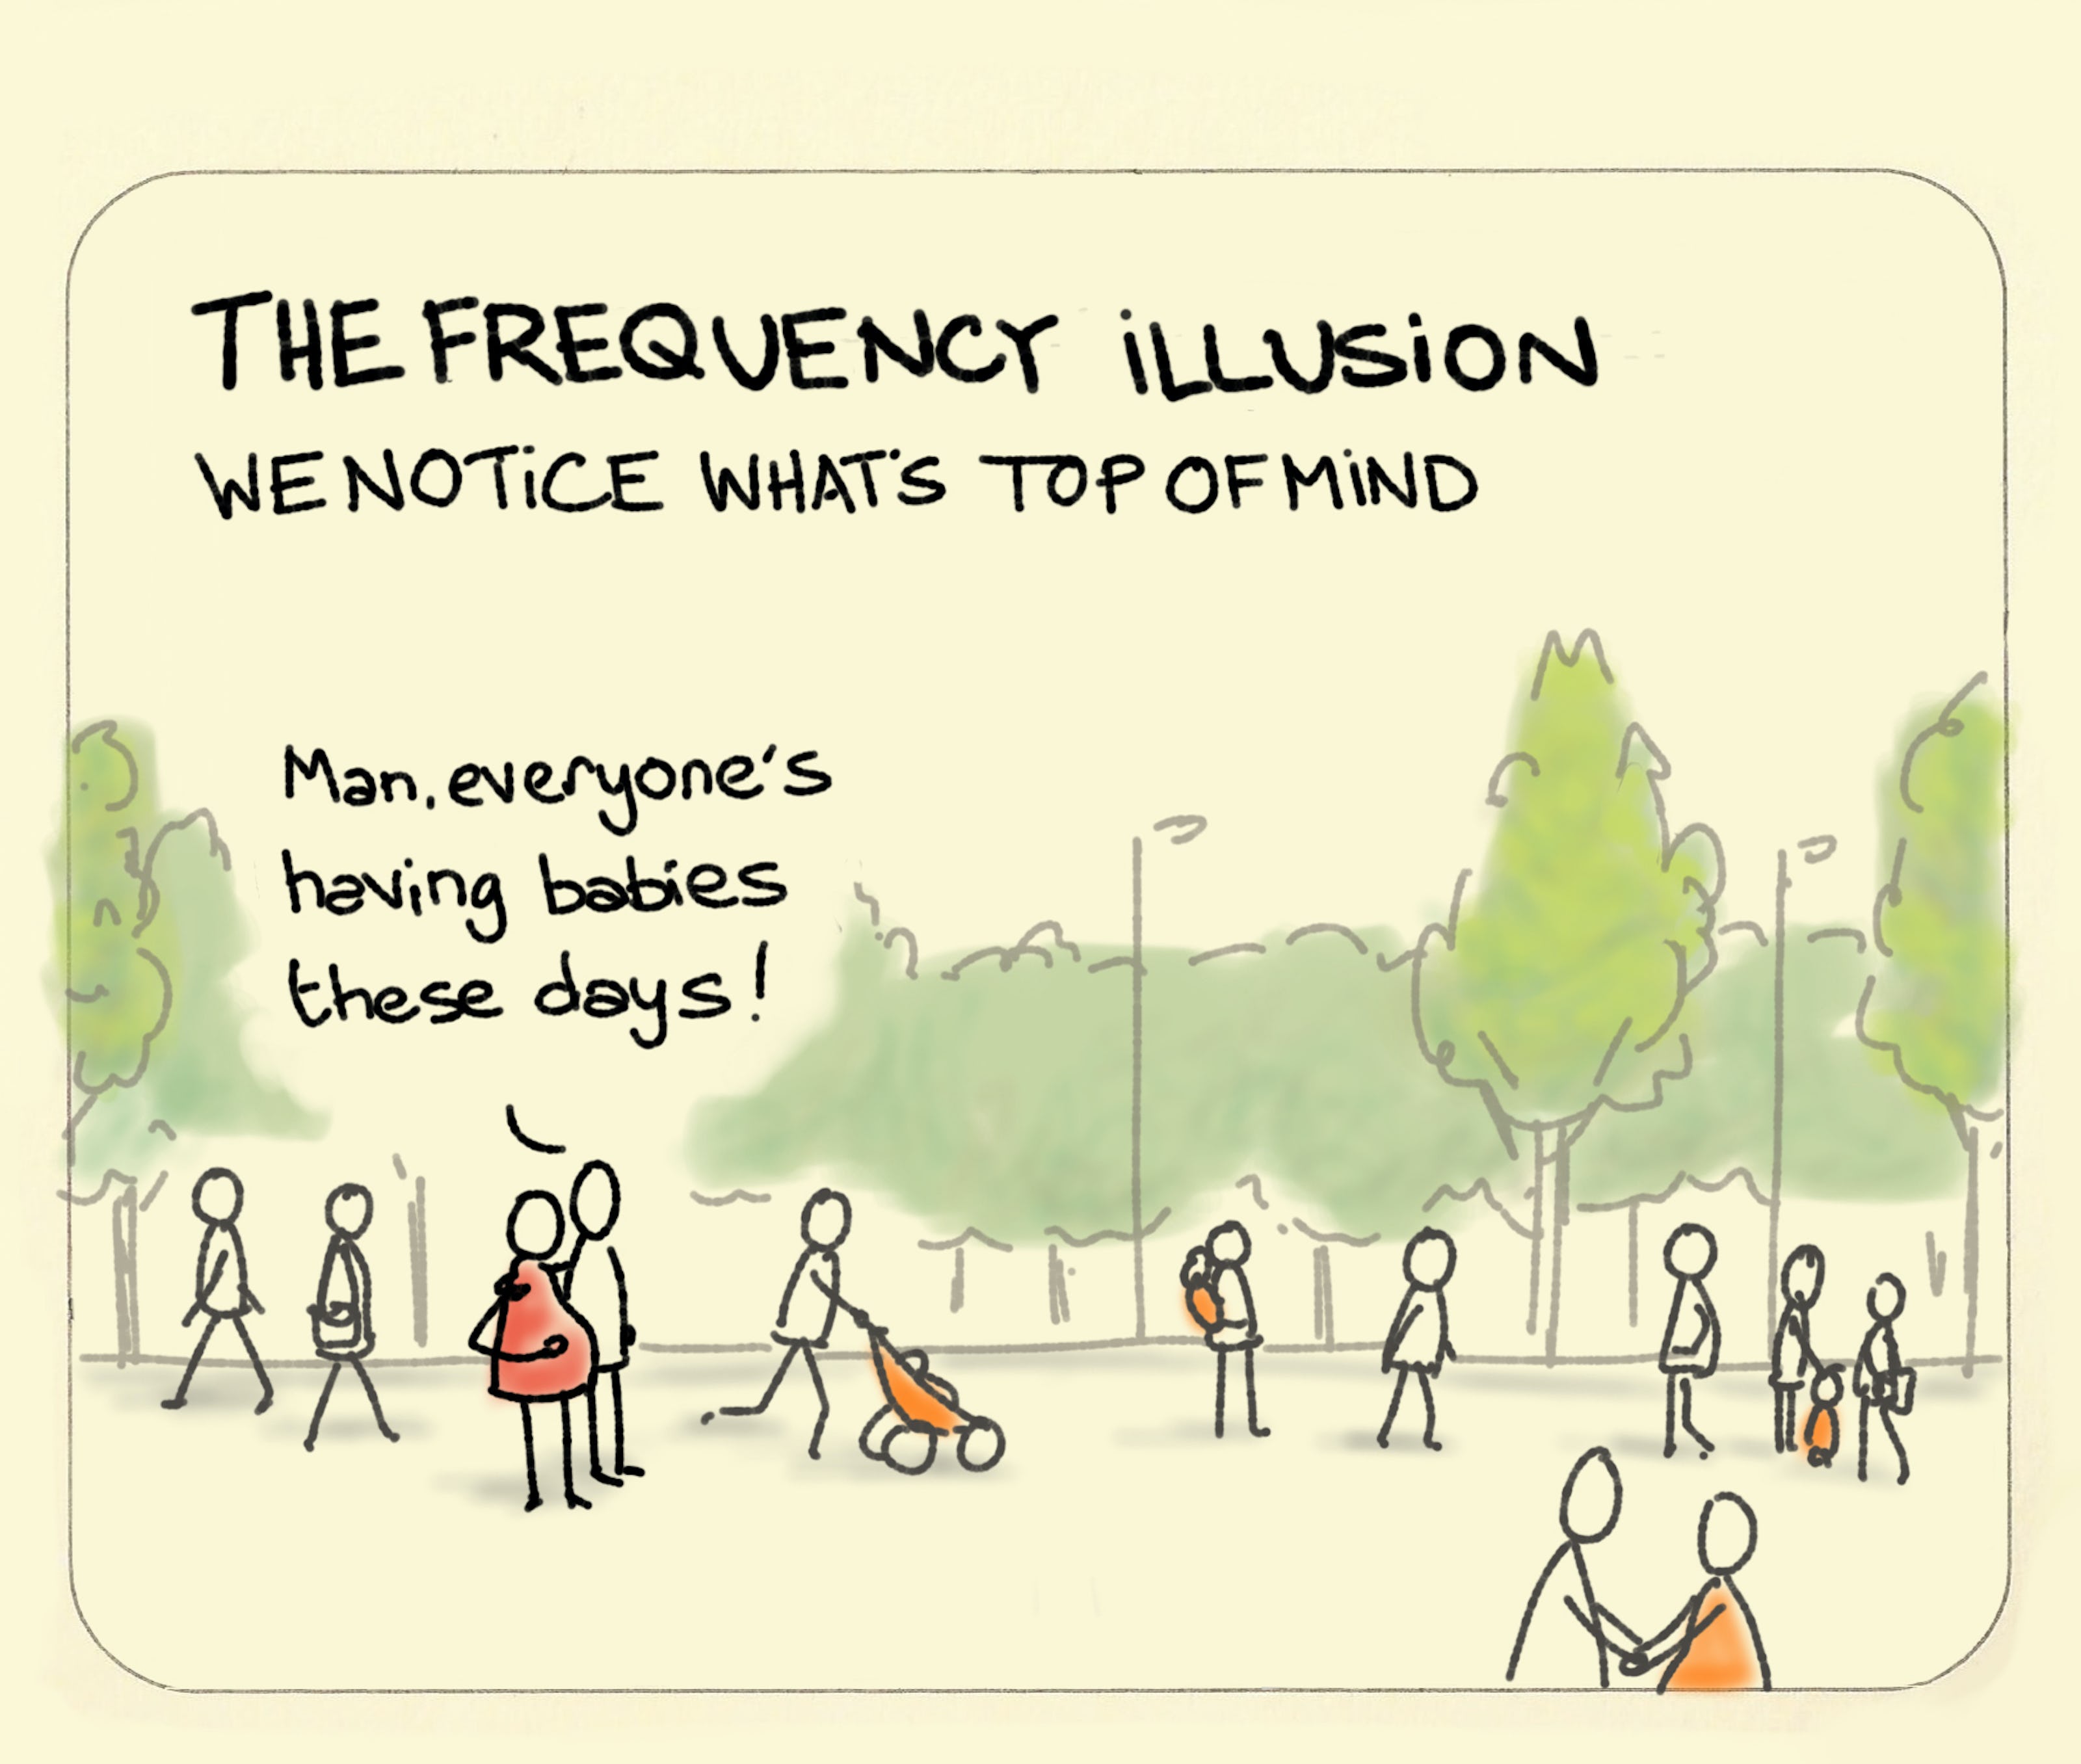 THE FREQUENCY iLLUSiON
WE NOTiCE WHAT'S TOP OF MiND
Man, everyone's
having babies
these days!